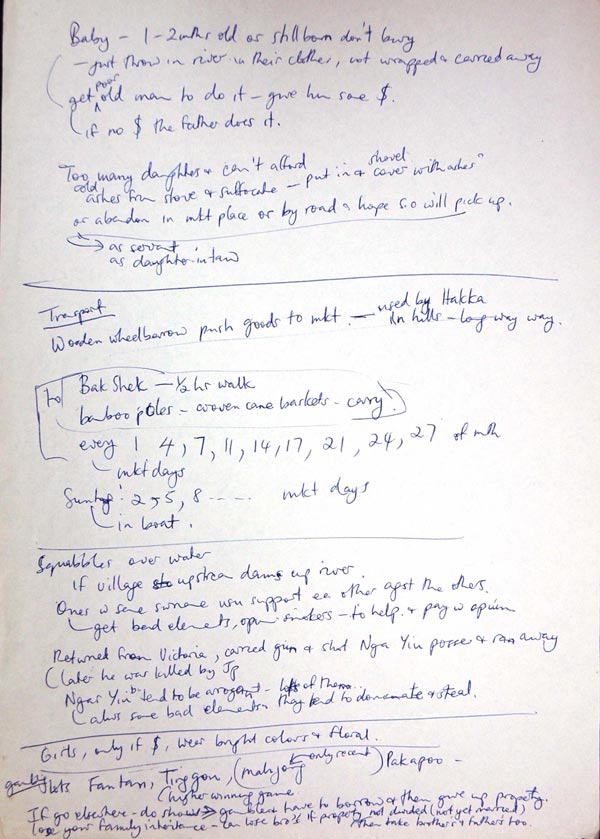 Baby - 1-2 mths old or stillborn don't bury
- just throw in river in their clothes, not wrapped & carried away
get poor old man to do it - give him some $.
if no $ the father does it.
Too many daughters & can't afford
cold ashes from stove & suffocate - put in & shovel cover with ashes"
or abandon in mkt place or by road & hope s.o will pick up.
as servant
as daughter-in-law
Transport
Wooden wheelbarrow push goods to mkt. - used by Hakka
in hills - long way way.
to Bak Shek - 1/2 hr walk
bamboo poles - woven cane baskets - carry.
every 1 4, 7, 11, 14, 17, 21, 24, 27 of mth
mkt days
2, 5, 8 ..... mkt days
in boat.
Squabbles over water
If village upstream dams up river.
Ones w same surname usu support ea other agst the others.
get bad elements, opium smokers - to help & pay w opium
Returned from Victoria, carried gun & shot Nga Yiu posser & ran away
(later he was killed by Jp
Ngar Yiu tend to be arrogant - lots of them..
always some bad elements they tend to dominate & steal.
Girls, only if $, wear bright colors & floral.
Fantan, (mahjong only recent) Pakapoo -
(higher winning game
If go elsewhere - do show have to borrow & then give up property.
lose your family inheritance - can lose bro's if property not divided (not yet married)
then take father's & father's too.